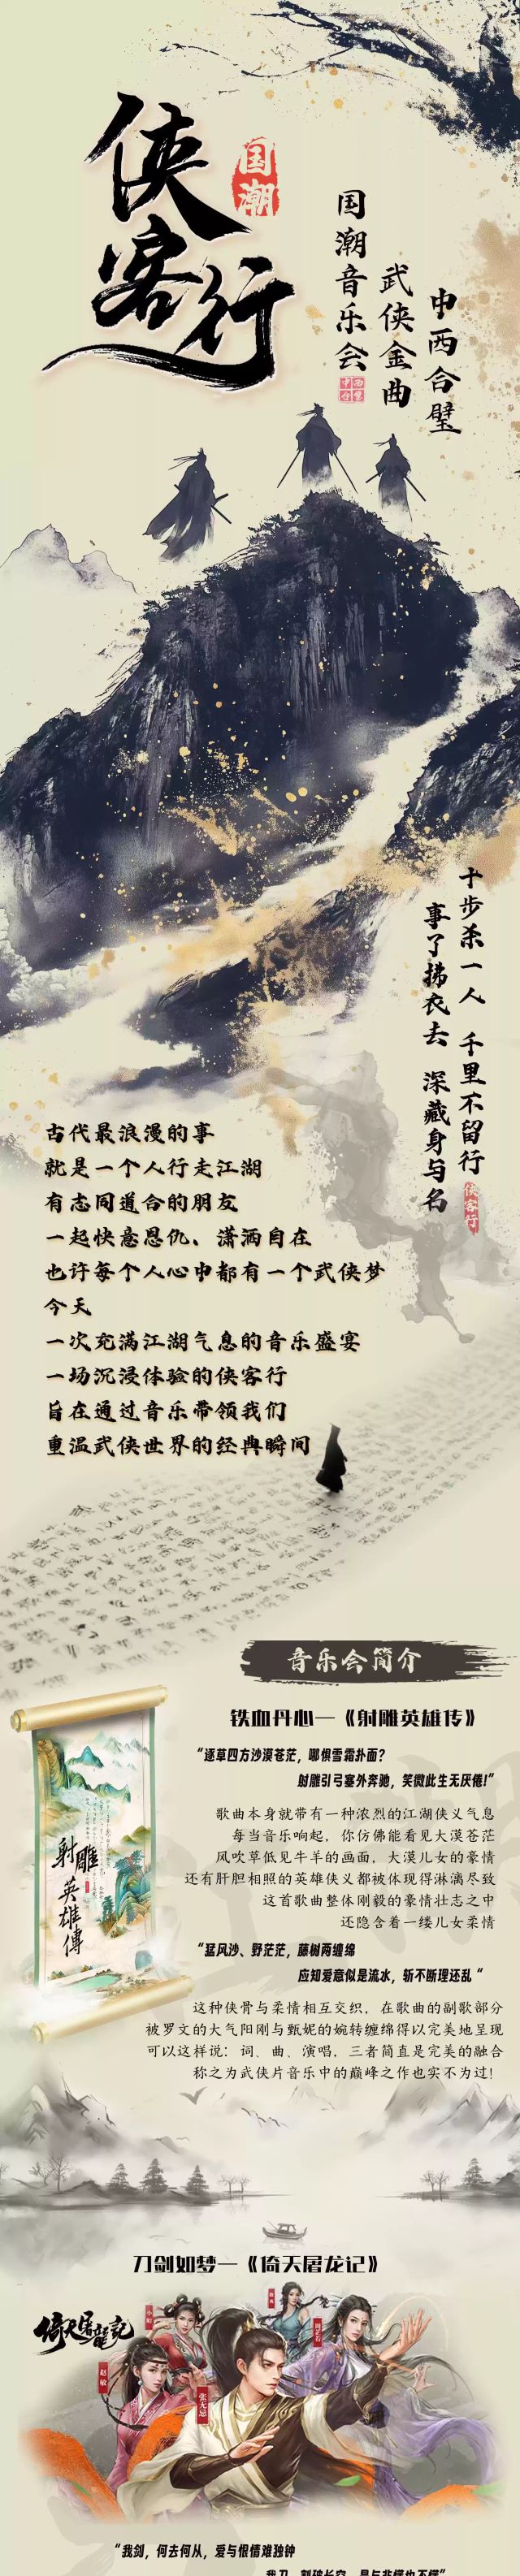 侠客行
国潮
国潮音乐会
武侠金曲
中西合璧
十步杀一人 千里不留行
事了拂衣去 深藏身与名
侠客行
古代最浪漫的事
就是一个人行走江湖
有志同道合的朋友
一起快意恩仇、潇洒自在
也许每个人心中都有一个武侠梦
今天
一次充满江湖气息的音乐盛宴
一场沉浸体验的侠客行
旨在通过音乐带领我们
重温武侠世界的经典瞬间
音乐会简介
铁血丹心—《射雕英雄传》
“逐草四方沙漠苍茫，哪惧雪霜扑面？
射雕引弓塞外奔驰，笑傲此生无厌倦!”
歌曲本身就带有一种浓烈的江湖侠义气息
每当音乐响起，你仿佛能看见大漠苍茫
风吹草低见牛羊的画面，大漠儿女的豪情
还有肝胆相照的英雄侠义都被体现得淋漓尽致
这首歌曲整体刚毅的豪情壮志之中
还隐含着一缕儿女柔情
射雕
英雄傳
“猛风沙、野茫茫，藤树两缠绵
应知爱意似是流水，斩不断理还乱“
这种侠骨与柔情相互交织，在歌曲的副歌部分
被罗文的大气阳刚与甄妮的婉转缠绵得以完美地呈现
可以这样说：词、曲、演唱，三者简直是完美的融合
称之为武侠片音乐中的巅峰之作也实不为过!
刀剑如梦—《倚天屠龙记》
倚天屠龍記
小昭
周芷若
赵敏
张无忌
“我剑，何去何从，爱与恨情难独钟
我刀，割破长空，是与非懂也不懂”